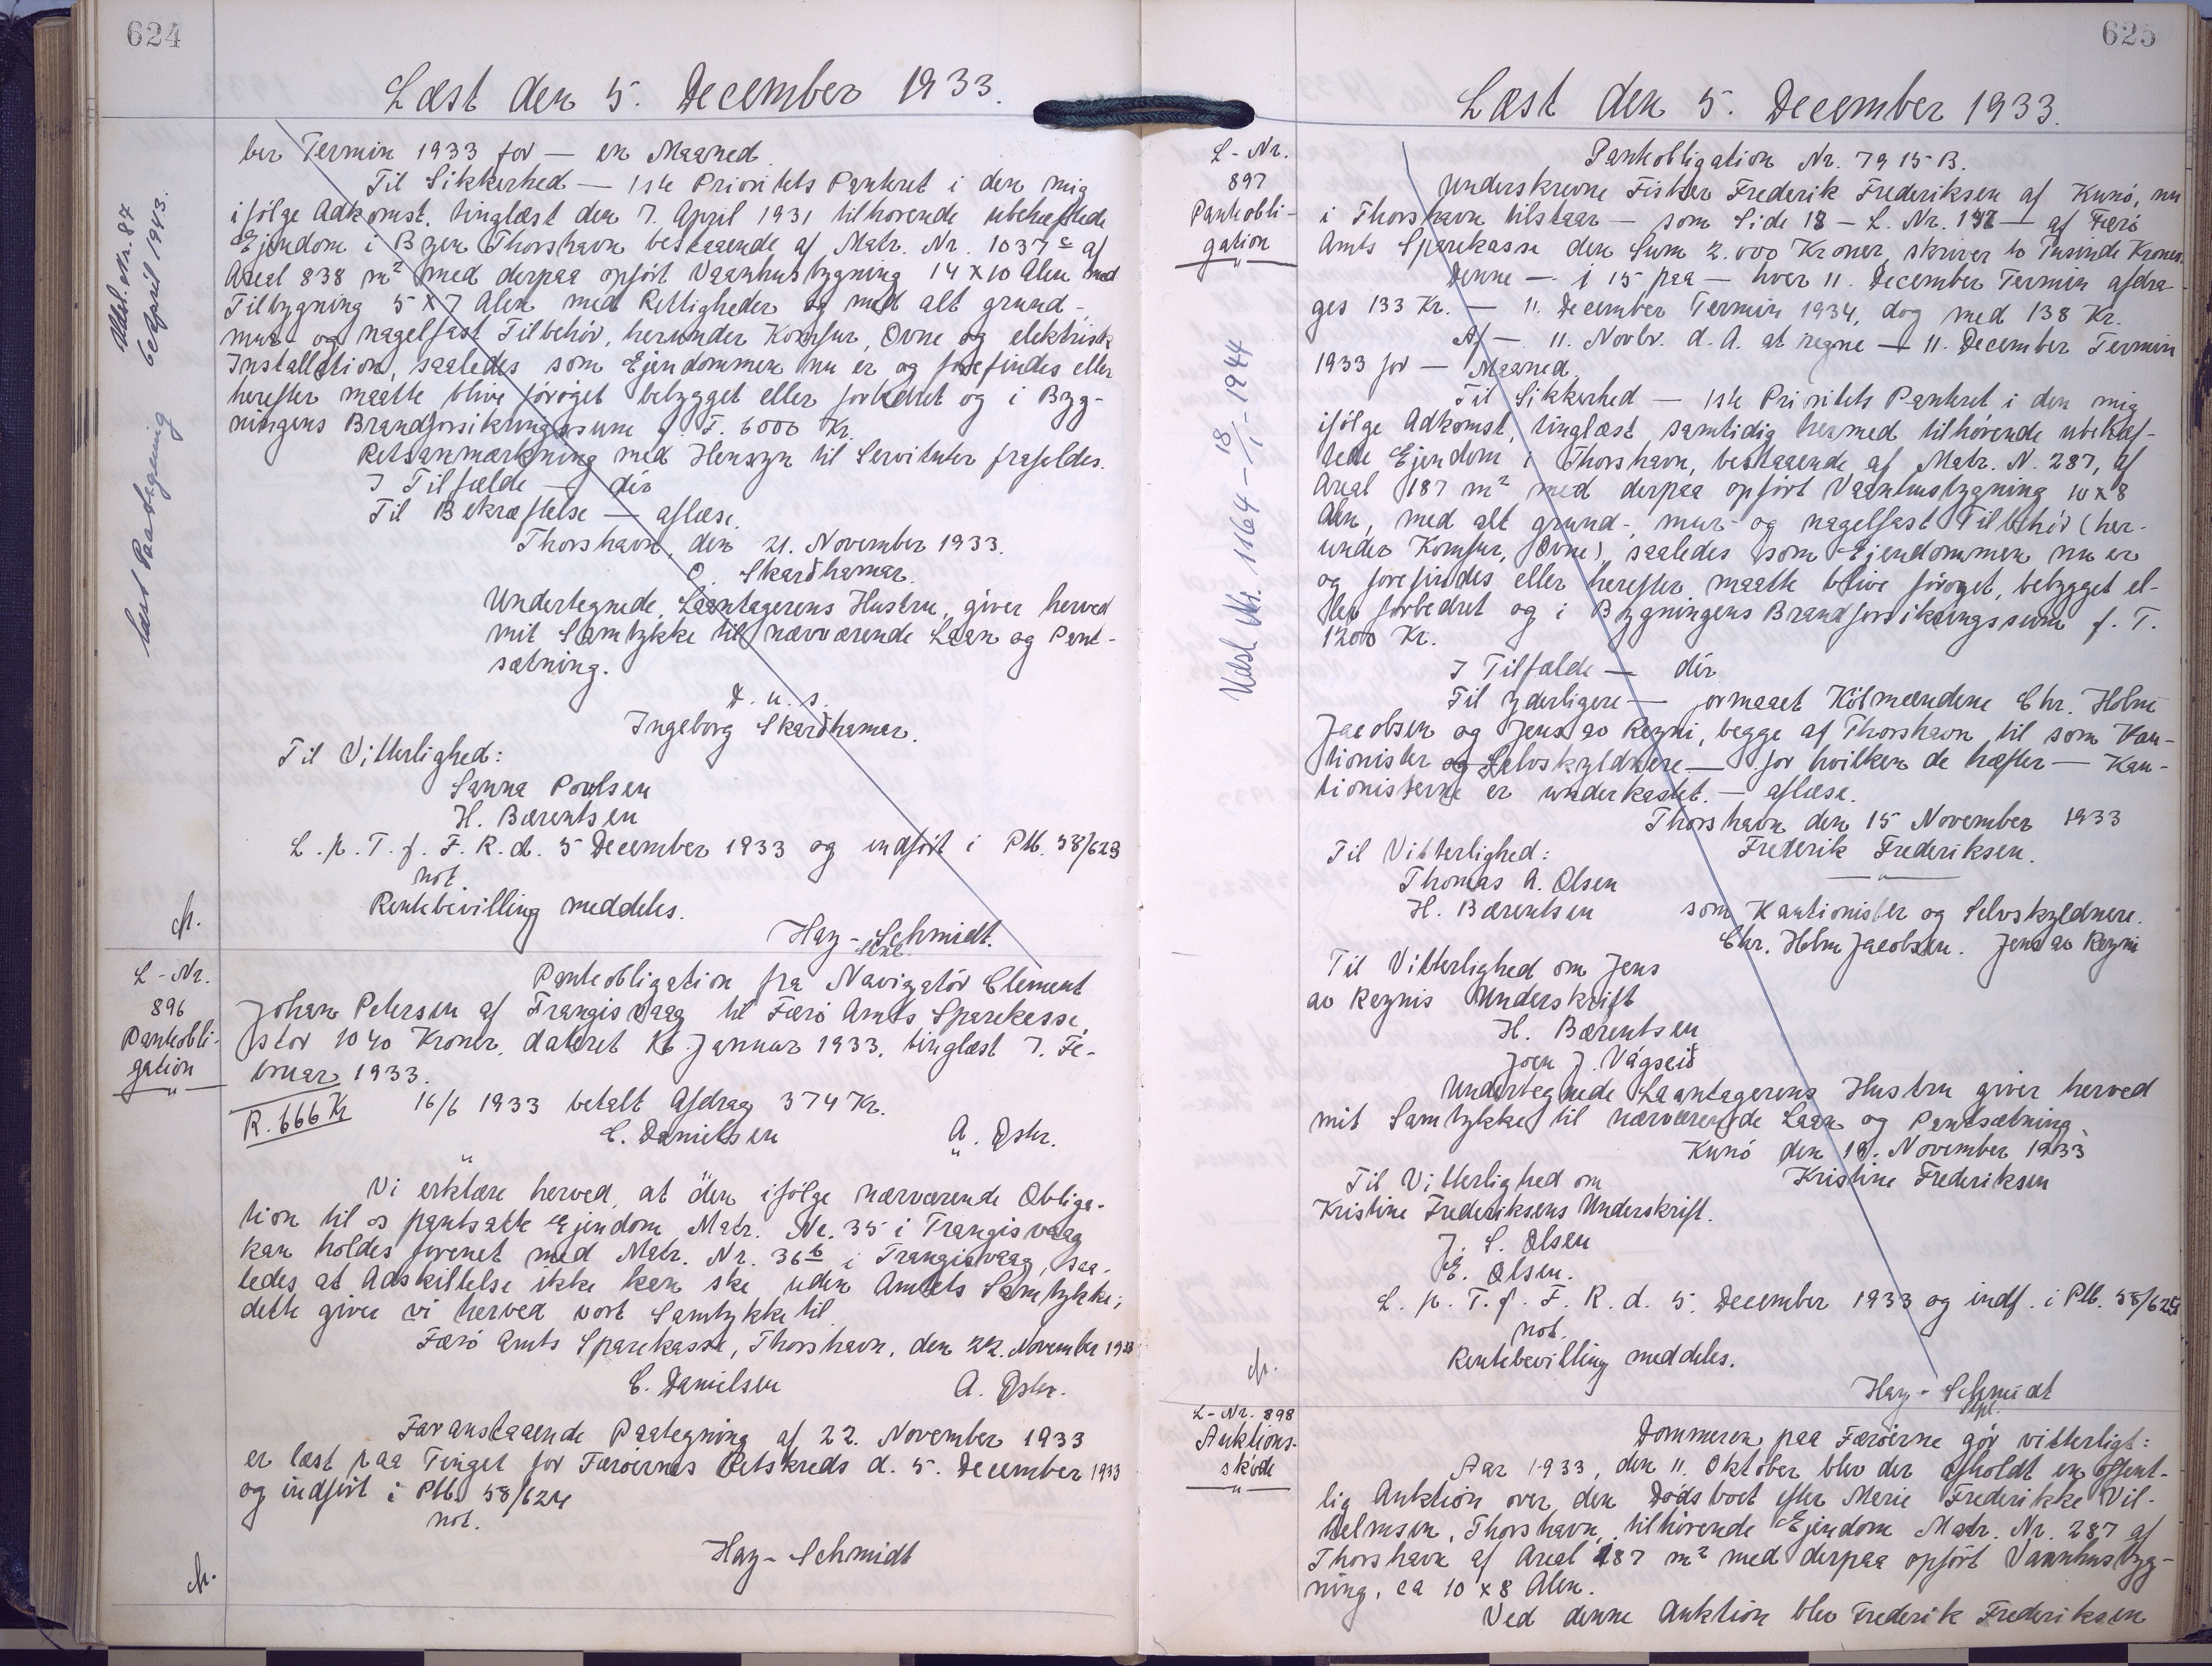 624
Læst den 5. December 1933.
ber Termin 1933 for — en Maaned.
Til Sikkerhed — 1ste Prioritets Panteret i den mig
ifølge Adkomst, tinglæst den 7. April 1931 tilhørende ubehæftede
Ejendom i Byen Thorshavn bestaaende af Matr. Nr. 1037c af
Areal 838 m² med derpaa opført Vaanhusbygning 14 x 10 Alen med
Tilbygning 5 x 7 Alen med Rettigheder og med alt grund-,
mur- og nagelfast Tilbehør, herunder Komfur, Ovne og elektrisk
Installation, saaledes som Ejendommen nu er og forefindes eller
herefter maatte blive forøget bebygget eller forbedret og i Byg-
ningens Brandforsikringssum p. T. 6000 Kr.
Retsanmærkning med Hensyn til Servituter frafaldes.
I Tilfælde — dér
Til Bekræftelse — aflæse.
Thorshavn, den 21. November 1933.
O. Skarðhamar.
Undertegnede, Laantagerens Hustru, giver herved
mit Samtykke til nærværende Laan og Pant-
sætning.
D. u. s.
Ingeborg Skarðhamar.
Til Vitterlighed:
Sanna Poulsen
H. Bærentsen
L. p. T. f. F. R. d. 5 December 1933 og indført i Ptb. 58/623
not.
Rentebevilling meddeles.
Hay-Schmidt.
Læst Paategning
Udsl. Nr. 87
6 April 1943.
L-Nr.
896
Pantobli-
gation
Pantobligation fra Navigatør Clement
Johan Petersen af Trangisvaag til Færø Amts Sparekasse
stor 1040 Kroner, dateret 16. Januar 1933, tinglæst 7. Fe-
bruar 1933.
R. 666 Kr
16/6 1933 betalt Afdrag 374 Kr.
C. Danielsen A. Dshr.
Vi erklære herved, at den ifølge nærværende Obliga-
tion til os pantsatte Ejendom Matr. Nr. 35 i Trangisvaag
kan holdes forenet med Matr. Nr. 36b i Trangisvaag, saa-
ledes at Adskillelse ikke kan ske uden Amtets Samtykke;
dette give vi herved vort Samtykke til.
Færø Amts Sparekasse, Thorshavn, den 22. November 1933
C. Danielsen A. Dshr.
Foranstaaende Paategning af 22. November 1933
er læst paa Tinget for Færøernes Retskreds d. 5. December 1933
og indført i Ptb. 58/624
not.
Hay-Schmidt
625
Læst den 5. December 1933.
L-Nr.
897
Pantobli-
gation
Læst Nr. 1164 - 18/1 - 1944
Pantobligation Nr. 7915 B.
Underskrevne Fisker Frederik Frederiksen af Kunø, nu
i Thorshavn tilstaar — som Side 18 - L. Nr. — af Færø
Amts Sparekasse den Sum 2.000 Kroner, skriver to Tusinde Kroner.
Denne — i 15 paa — hver 11. December Termin afdra-
ges 133 Kr. — 11. December Termin 1934, dog med 138 Kr.
Af — 11. Novbr. d. A. at regne — 11. December Termin
1933 for — Maaned.
Til Sikkerhed — 1ste Prioritets Panteret i den mig
ifølge Adkomst, tinglæst samtidig hermed tilhørende ubehæf-
tede Ejendom i Thorshavn, bestaaende af Matr. N. 287, af
Areal 187 m² med derpaa opført Vaanhusbygning 10 x 8
Alen, med alt grund-, mur- og nagelfast Tilbehør (her-
under Komfur, Ovne), saaledes som Ejendommen nu er
og forefindes eller herefter maatte blive forøget, bebygget el-
ler forbedret og i Bygningens Brandforsikringssum p. T.
1200 Kr.
I Tilfælde — dér
Til yderligere — ormaaet Købmændene Chr. Holm
Jacobsen og Jens av Reyni, begge af Thorshavn, til som Kau-
tionister og Selvskyldnere — for hvilken de hæfter — Kau-
tionisterne er underkastet. — aflæse.
Thorshavn den 15 November 1933
Til Vitterlighed: Frederik Frederiksen.
Thomas A. Olsen
H. Bærentsen som Kautionister og Selvskyldnere.
Chr. Holm Jacobsen. Jens av Reyni
Til Vitterlighed om Jens
av Reynis Underskrift
H. Bærentsen
Joen J. Vágseið
Undertegnede Laantagerens Hustru giver herved
mit Samtykke til nærværende Laan og Pantsætning.
Kunø den 18. November 1933
Til Vitterlighed om Kristine Frederiksen
Kristine Frederiksens Underskrift.
J. S. Olsen
E. Olsen.
L. p. T. f. F. R. d. 5. December 1933 og indf. i Ptb. 58/625
not.
Rentebevilling meddeles.
Hay-Schmidt
L-Nr. 898
Auktions-
skøde
Dommeren paa Færøerne gør vitterligt:
Aar 1933, den 11. Oktober blev der afholdt en offent-
lig Auktion over den Dødsboet efter Marie Frederikke Vil-
helmsen, Thorshavn, tilhørende Ejendom Matr. Nr. 287 af
Thorshavn af Areal 187 m² med derpaa opført Vaanhusbyg-
ning, ca 10 x 8 Alen.
Ved denne Auktion blev Frederik Frederiksen